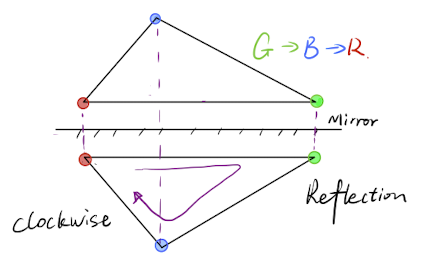 G → B → R.
Mirror
Reflection
clockwise